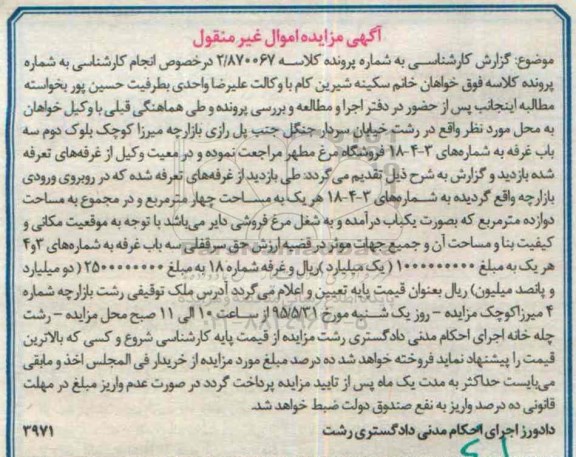 آگهی مزایده اموال غیر منقول
موضوع: گزارش کارشناسی به شماره پرونده کلاسه ۲/۸۷۰۰۶۷ درخصوص انجام کارشناسی به شماره
پرونده کلاسه فوق خواهان خانم سکینه شیرین کام با وکالت علیرضا واحدی بطرفیت حسین پور بخواسته
مطالبه اینجانب پس از حضور در دفتر اجرا و مطالعه و بررسی پرونده و طی هماهنگی قبلی با وکیل خواهان
به محل مورد نظر واقع در رشت خیابان سردار جنگل جنب پل رازی بازارچه میرزا کوچک بلوک دوم سه
باب غرفه به شماره‌های ۳-۴-۱۸ فروشگاه مرغ مطهر مراجعت نموده و در معیت وکیل از غرفه‌های تعرفه
شده بازدید و گزارش به شرح ذیل تقدیم می‌گردد: طی بازدید از غرفه‌های تعرفه شده که در روبروی ورودی
بازارچه واقع گردیده به شماره‌های ۳-۴-۱۸ هر یک به مساحت چهار مترمربع و در مجموع به مساحت
دوازده مترمربع که بصورت یکباب درآمده و به شغل مرغ فروشی دایر می‌باشد با توجه به موقعیت مکانی و
کیفیت بنا و مساحت آن و جمیع جهات موثر در قضیه ارزش حق سرقفلی سه باب غرفه به شماره‌های ۳و۴
هر یک به مبلغ ۱۰۰۰۰۰۰۰۰۰ (یک میلیارد) ریال و غرفه شماره ۱۸ به مبلغ ۲۵۰۰۰۰۰۰۰۰ (دو میلیارد
و پانصد میلیون) ریال بعنوان قیمت پایه تعیین و اعلام می‌گردد آدرس ملک توقیفی رشت بازارچه شماره
۴ میرزاکوچک مزایده - روز یک شنبه مورخ ۹۵/۵/۳۱ از ساعت ۱۰ الی ۱۱ صبح محل مزایده - رشت
چله خانه اجرای احکام مدنی دادگستری رشت مزایده از قیمت پایه کارشناسی شروع و کسی که بالاترین
قیمت را پیشنهاد نماید فروخته خواهد شد ده درصد مبلغ مورد مزایده از خریدار فی المجلس اخذ و مابقی
می‌بایست حداکثر به مدت یک ماه پس از تایید مزایده پرداخت گردد در صورت عدم واریز مبلغ در مهلت
قانونی ده درصد واریز به نفع صندوق دولت ضبط خواهد شد.
دادورز اجرای احکام مدنی دادگستری رشت ۳۹۷۱